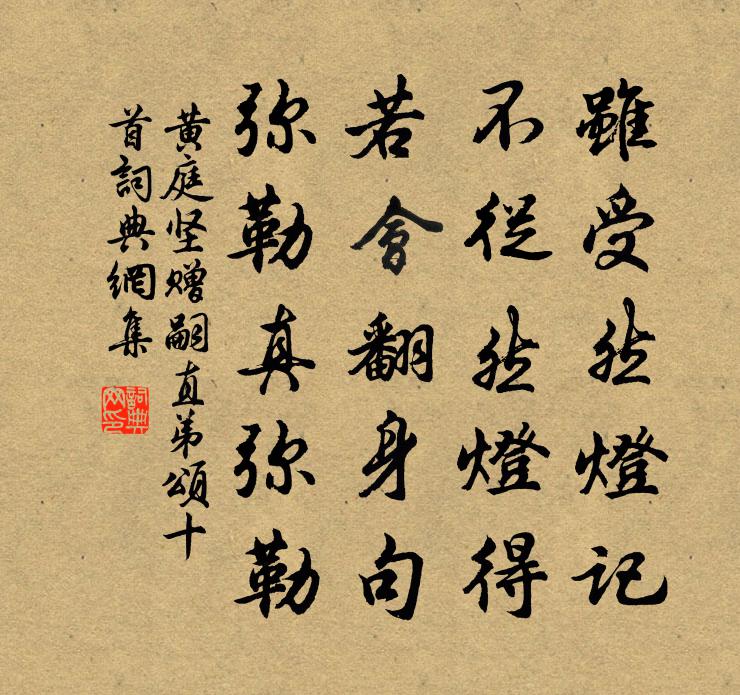 雖受然燈記
不從然燈得
若會翻身句
弥勒真弥勒
黄庭坚赠嗣直弟頌十
首詞典網集
詞典網印